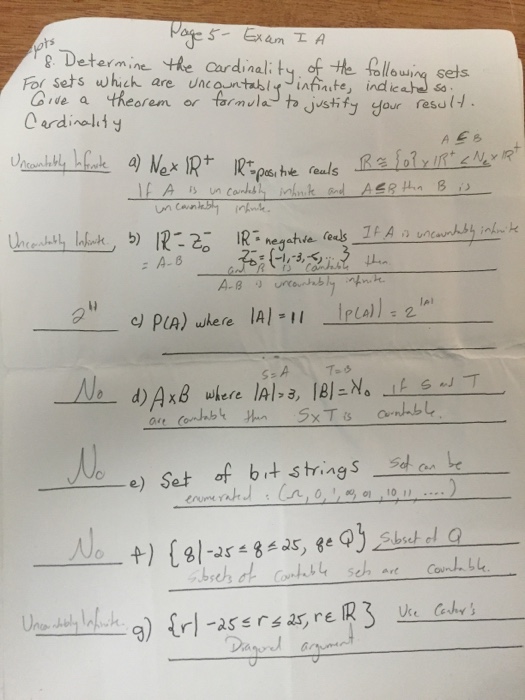 Page 5 - Exam I A
pts
8. Determine the cardinality of the following sets.
For sets which are uncountably infinite, indicate so.
Give a theorem or formula to justify your result.
Cardinality
A ⊆ B
Uncountably Infinite a) Ne x ℝ⁺ ℝ⁺ = positive reals ℝ ≅ {0} x ℝ⁺ ⊆ Ne x ℝ⁺
If A is uncountably infinite and A ⊆ B then B is
uncountably infinite.
Uncountably Infinite, b) ℝ⁻ - Z₀⁻ ℝ⁻ = negative reals If A is uncountably infinite
= A-B Z₀⁻ = {-1, -3, -5, ...} then
and B is countable
A-B is uncountably infinite.
2¹¹ c) P(A) where |A| = 11 |P(A)| = 2^|A|
S=A T=B
ℵ₀ d) AxB where |A| = 3, |B| = ℵ₀ if S and T
are countable then SxT is countable.
ℵ₀ e) Set of bit strings Set can be
enumerated : (λ, 0, 1, 00, 01, 10, 11, ....)
ℵ₀ f) {q | -25 ≤ q ≤ 25, q ∈ Q} Subset of Q
Subsets of countable sets are countable.
Uncountably Infinite g) {r | -25 ≤ r ≤ 25, r ∈ ℝ} Use Cantor's
Diagonal argument